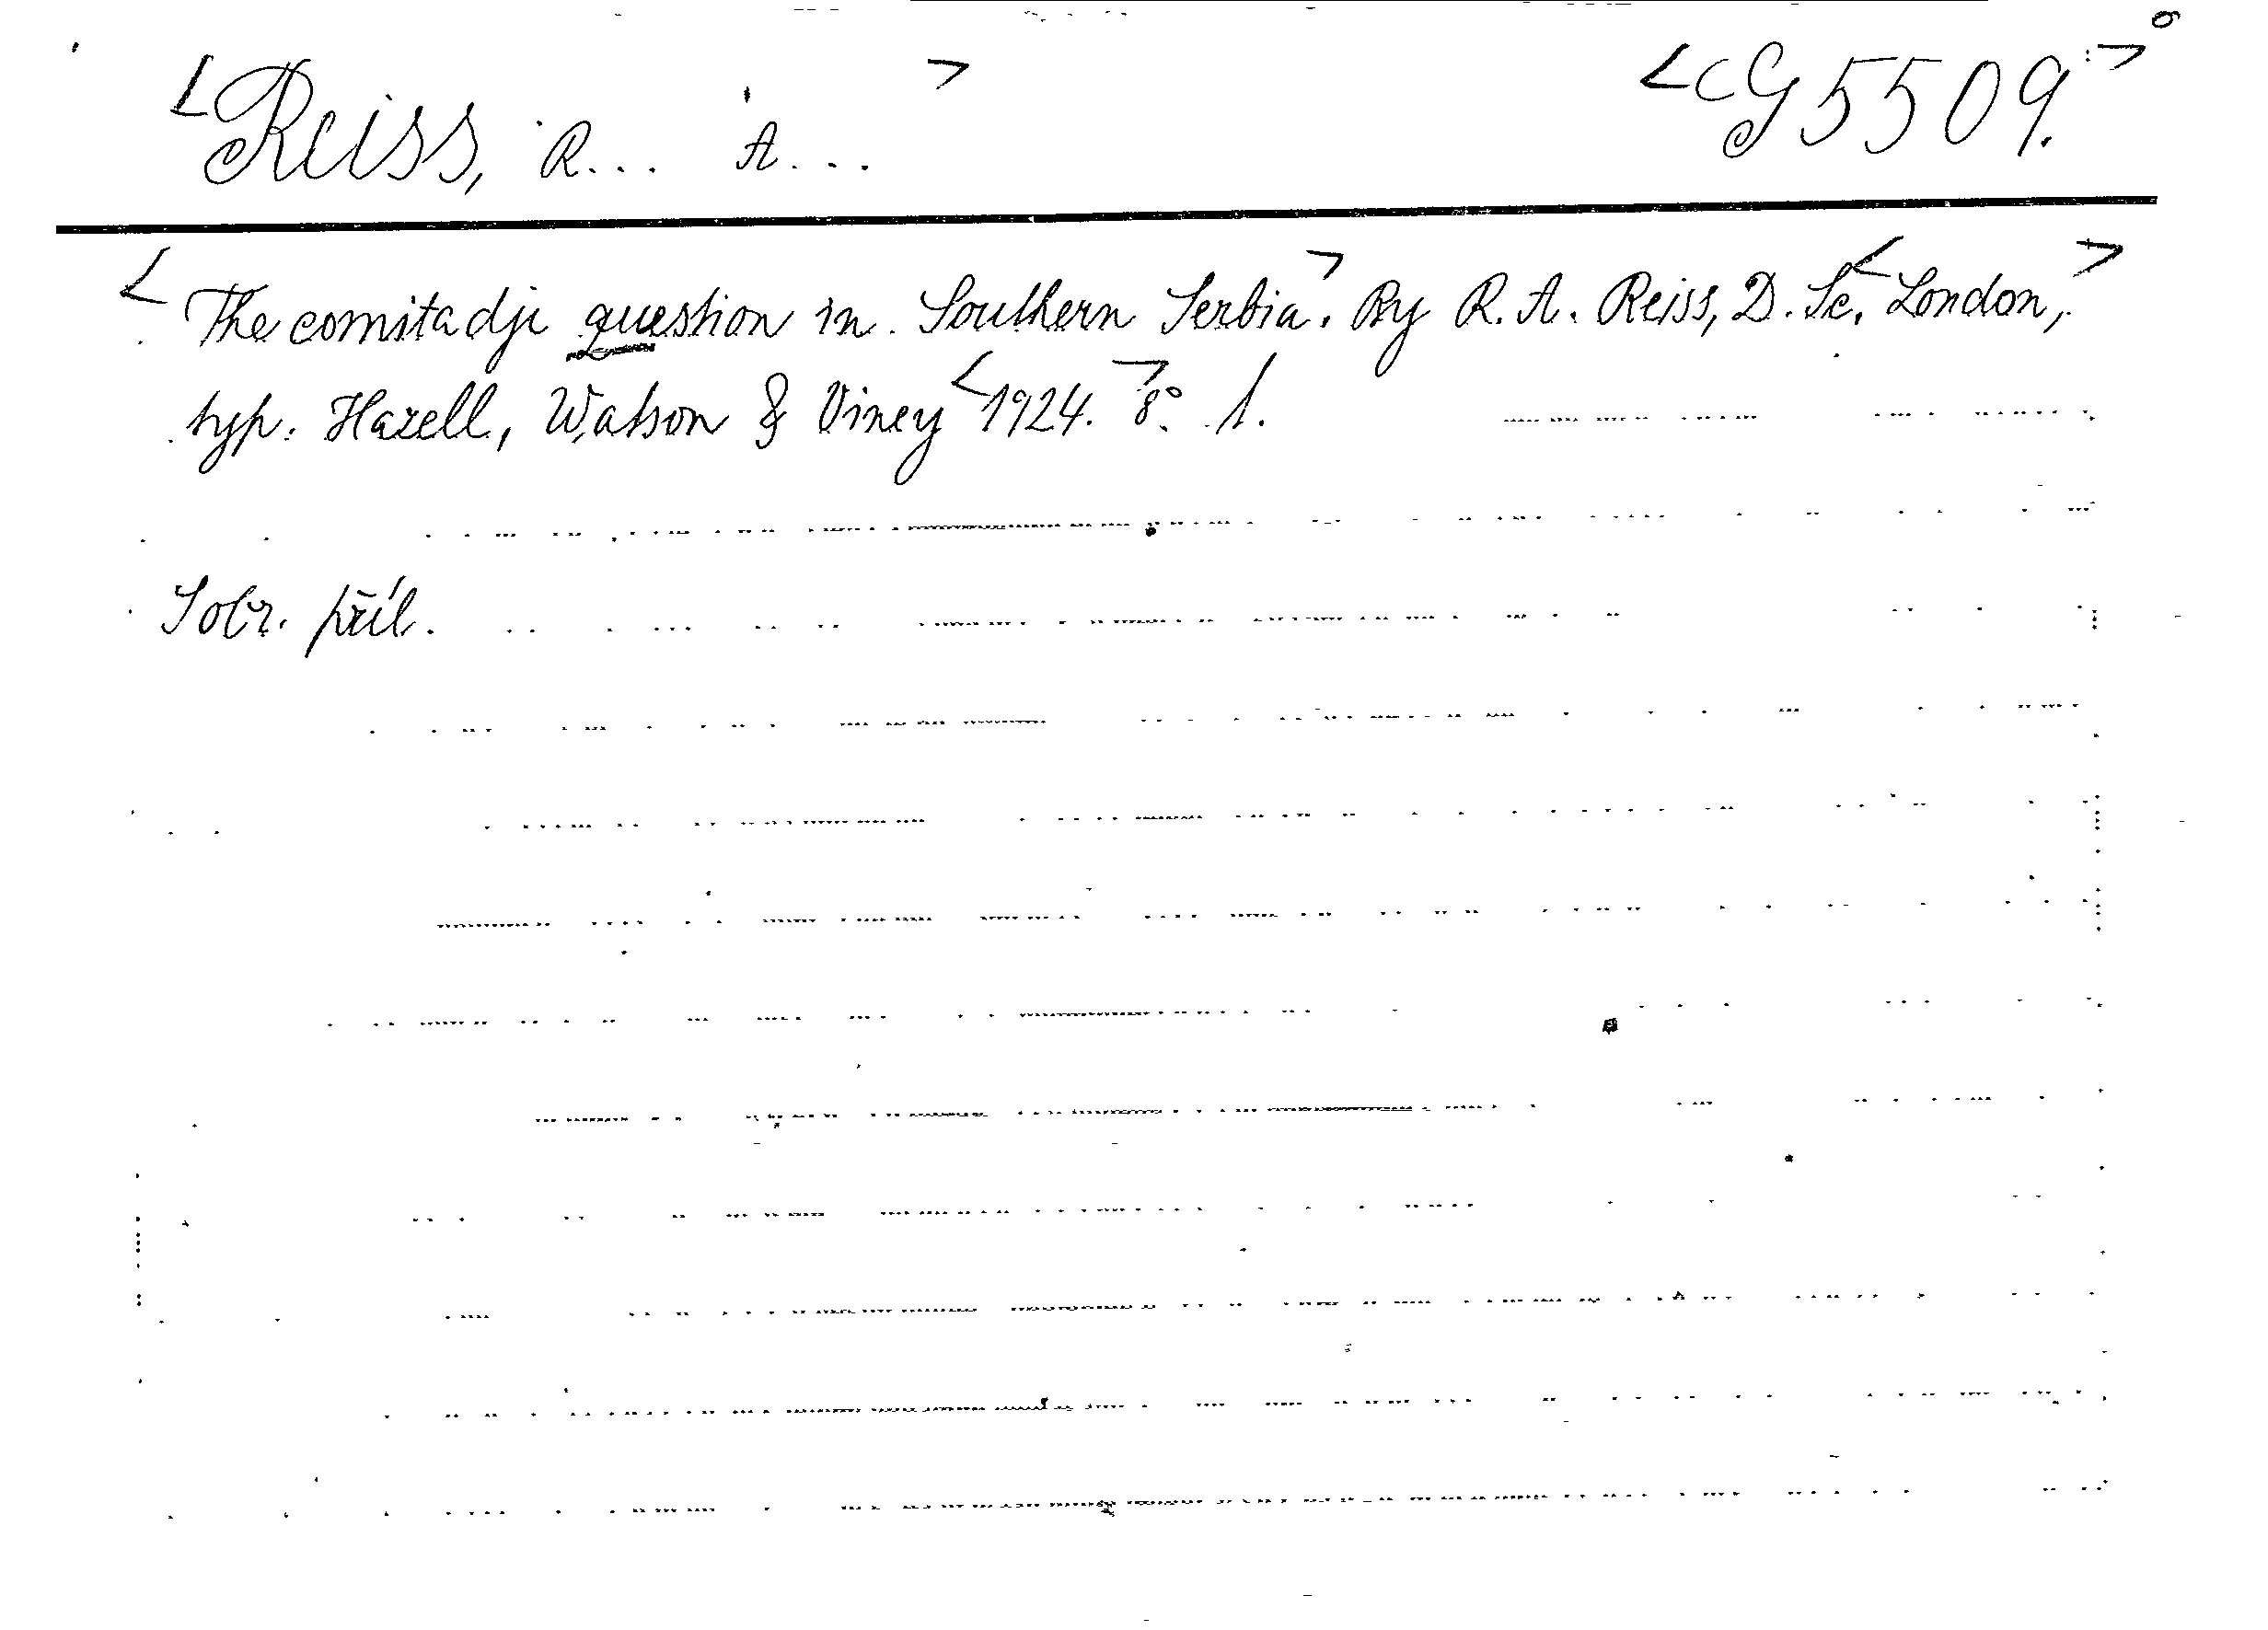 <Reiss, R... A...> <G 5509.>
<The comitadji question in Southern Serbia>. By R. A. Reiss, D. Sc. <London,>
typ. Hazell, Watson & Viney <1924.> 8°. 1.
Sobr. příl.